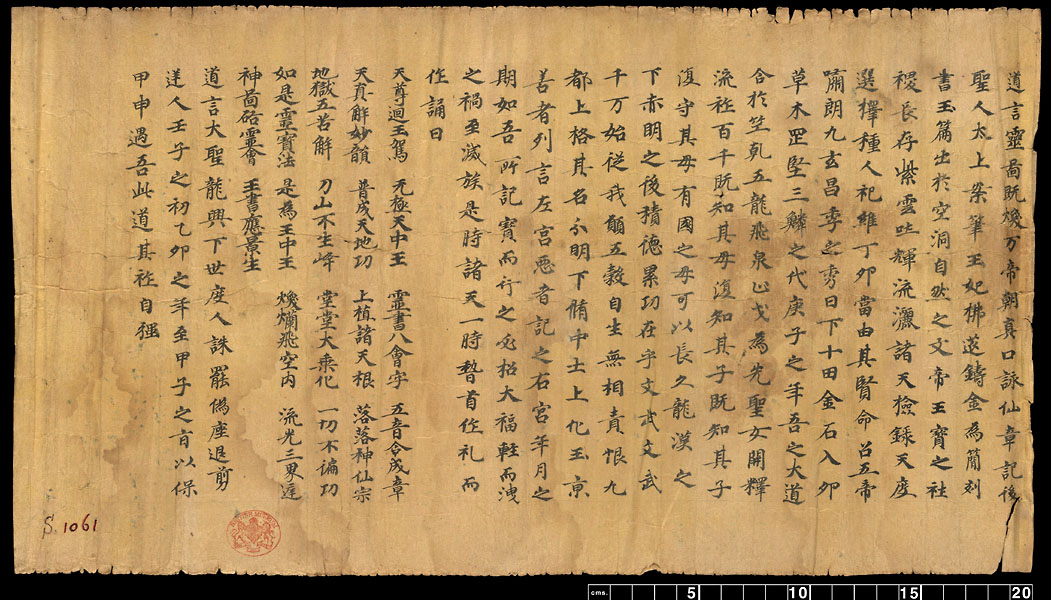 道言靈啚既煥万帝朝真口詠仙章記後
聖人太上染筆玉妃拂莚鑄金為蕳刻
書玉篇出於空洞自然之文帝玉寶之社
稷長存紫雲吐輝流灑諸天撿錄天度
選擇種人祀維丁夘當由其賢命召五帝
嘯朗九玄昌季之秀日下十田金石入夘
草木罡堅三鱗之代庚子之年吾之大道
合於竺乹五龍飛泉止戈為先聖女開釋
流祚百千既知其母復知其子既知其子
復守其母有國之母可以長久龍漢之
下赤明之後積德累功在乎文武文武
千万始從我願五穀自生無相責恨九
都上格其名不明下脩中士上化玉京
善者列言左宮惡者記之右宮年月之
期如吾所記寶而行之必枯大福輕而洩
之禍至滅族是時諸天一時嵆首作礼而
作誦曰
天尊迴玉駕 无極天中王 靈書八會字 五音合成章
天真解妙韻 普成天地功 上植諸天根 落落神仙宗
地獄五苦解 刀山不生峰 堂堂大乘化 一切不徧功
如是靈寶法 是為王中王 煥爛飛空內 流光三界庭
神啚啓靈會 玉書應景生
道言大聖龍興下世座人誅罷僞座退剪
送人壬子之初乙夘之年至甲子之旬以保
甲申遇吾此道其祚自強
S. 1061
cms. 5 10 15 20